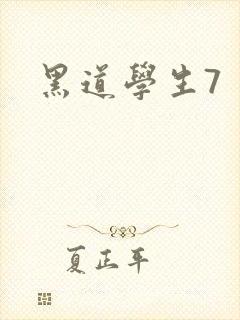 黑道學生7
夏正平